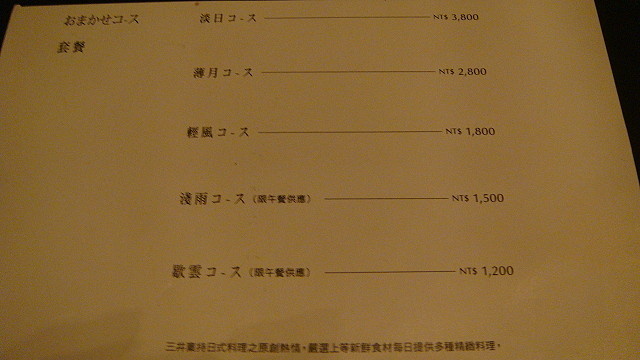 おまかせコース 淡日コース NT$ 3,800
套餐
薄月コース NT$ 2,800
輕風コース NT$ 1,800
淺雨コース (限午餐供應) NT$ 1,500
歇雲コース (限午餐供應) NT$ 1,200
三井秉持日式料理之原創熱情，嚴選上等新鮮食材每日提供多種精緻料理。